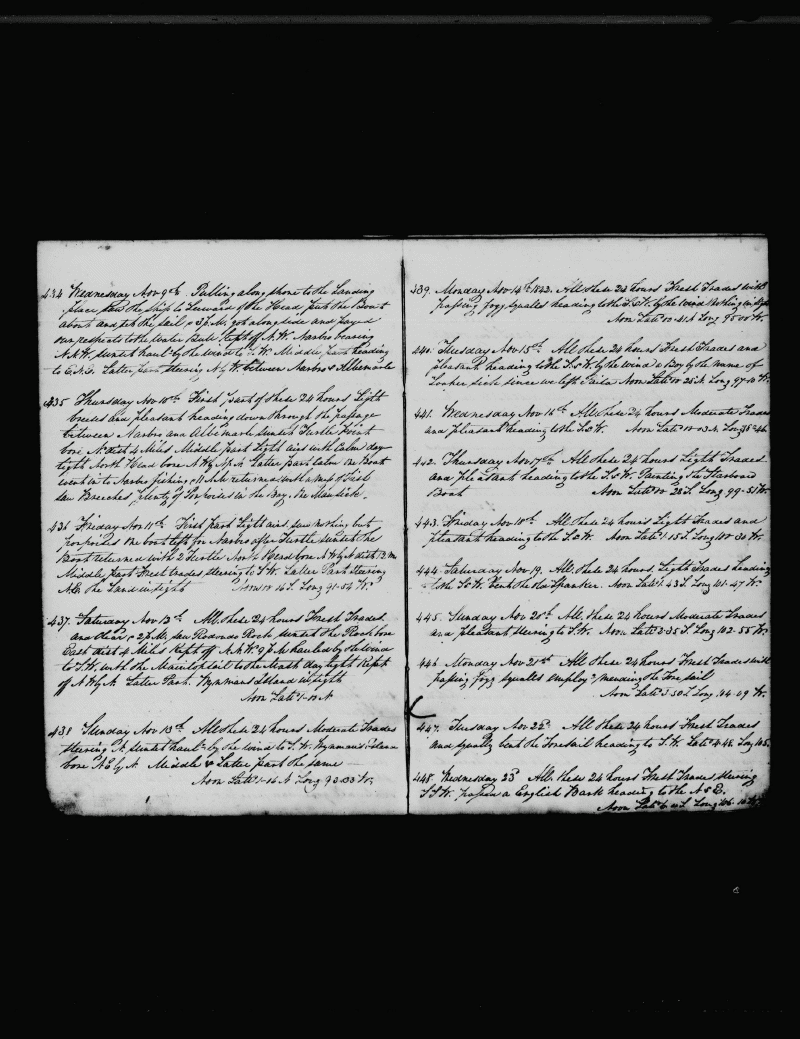 434 Wednesday Nov 9th. Pulling along shore to the Landing
place, the Ship to Leeward of the Head, put the Boat
about and set the sail, 3 P.M. got alongside and payed
our respects to the Water Butt Kept off N.W. Narbro bearing
N.N.W. sunset haul'd by the wind to S.W. Middle part heading
to E.N.E. Latter part steering N by W. between Narbro & Albemarle
435 Thursday Nov 10th First part of these 24 hours Light
breezes and pleasant heading down through the passage
between Narbro and Albemarle sunset Turtle Point
bore N. dist 4 Miles Middle part Light airs with Calm day
light North Head bore N.W. Latter part calm one Boat
went in to Narbro fishing, 11 A.M. returned with a mess of Fish
saw Breeches plenty of Porpoises in the Bay
436 Friday Nov 11th First part Light airs. saw nothing but
porpoises one boat left for Narbro after Turtle sunset the
Boat returned with 2 Turtle Nor. Head bore N.W. by N dist 12 m
Middle part Fresh trades steering to S.W. Latter Part steering
N.E. the Land in sight Noon 00-14 S. Long 91-54 W.
437. Saturday Nov 12th All these 24 hours Fresh Trades
and clear, 2 P.M. saw Redondo Rock, sunset the Rock bore
East dist 4 Miles Kept off N.N.W. 9 P.M. hauled by the wind
to S.W. with the Maintopsail to the Mast day light Kept
off N.W by N. Latter Part. Wynmans Island in sight
Noon Latd 1-10 N
438 Sunday Nov 13th All these 24 hours Moderate Trades
steering N. sunset haul'd by the wind to S.W. Wynmans Island
bore N.E by N Middle & Latter part the same
Noon Latd 1-14 N Long 93-03 W.
439. Monday Nov 14th 1842. All these 24 hours Fresh Trades with
passing fogg squalls heading to the S.S.W. by the wind Nothing in sight
Noon Latd 00-41 N Long 95-00 W.
440. Tuesday Nov 15th All these 24 hours Fresh Trades and
pleasant heading to the S.S.W. by the wind a Boy by the name of
sick since we left Paita Noon Latd 00-25 N. Long 97-10 W.
441. Wednesday Nov 16th All these 24 hours Moderate Trades
and pleasant heading to the S.S.W. Noon Latd 00-03 N. Long 98-46
442. Thursday Nov 17th All these 24 hours Light Trades
and pleasant heading to the S.S.W. Painting the Starboard
Boat Noon Latd 00-28 S. Long 99-51 W.
443. Friday Nov 18th All these 24 hours Light Trades and
pleasant heading to the S.S.W. Noon Latd 1-15 S Long 100-30 W.
444. Saturday Nov 19. All these 24 hours. Light Trades heading
to the S.S.W. Bent the old Spanker. Noon Latd 1-43 S. Long 101-47 W.
445. Sunday Nov 20th All these 24 hours Moderate Trades
and pleasant steering to S.W. Noon Latd 2-35 S. Long 102-55 W.
446 Monday Nov 21st All these 24 hours Fresh Trades with
passing fogg squalls employ'd mending the Fore sail
Noon Latd 3-50 S Long 104-09 W.
447. Tuesday Nov 22d. All these 24 hours Fresh Trades
and squally bent the Foresail heading to S.W. Latd 4-48. Long 105.
448. Wednesday 23d All these 24 hours Fresh Trades steering
S.S.W. passed a English Bark heading to the N & E.
Noon Latd S. Long 106-10 W.